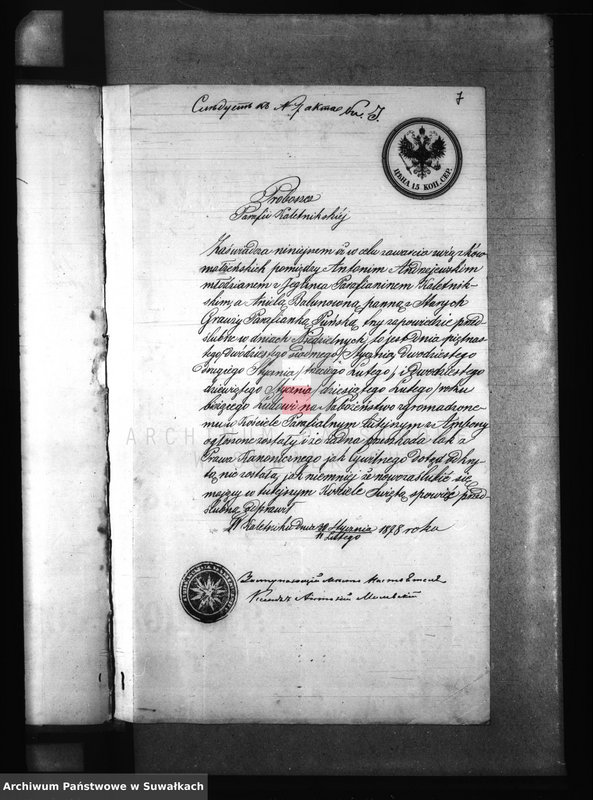 Слѣдуетъ къ № 7 акта
7
ЦѢНА 15 КОП. СЕР.
Proboszcz
Parafii Kaletnikskiéj
Zaświadza niniejszem iż w celu zawarcia związków
małżeńskich pomiędzy Antonim Andrzejewskim
młodzianem z Jeglińca Parafianinem Kaletnik-
skim, a Anielą Balunowną panną z Starych
Grauży Parafianką Puńską, trzy zapowiedzie przed-
ślubne w dniach Niedzielnych, to jest dnia piętnas-
tego/dwudziestego siódmego/Stycznia, dwudziestego
drugiego Stycznia/trzeciego Lutego/, i dwudziestego
dziewiątego Stycznia/dziesiątego Lutego/roku
bieżącego Ludowi na Nabożeństwo zgromadzone-
mu w Kościele Parafialnym tutejszym z Ambony
ogłoszone zostały i że żadna przeszkoda tak z
Prawa Kanonicznego jak Cywilnego dotąd odkry-
tą nie została, jak niemniej że nowozaślubić się
mający w tutejszym Kościele Świętą spowiedź przed-
ślubną odprawił
W Kaletniku dnia 30 Stycznia 1878 roku
11 Lutego
Заступающій мѣсто Настоятеля
Ксендзъ Антоній
ARCHIWUM
Archiwum Państwowe w Suwałkach